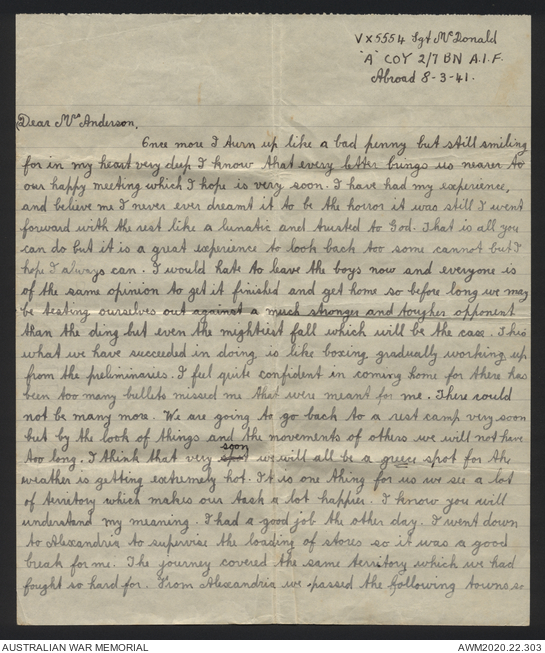 VX5554 Sgt McDonald
"A" COY 2/7 BN A.I.F.
Abroad 8-3-41.
Dear Mrs Anderson,
Once more I turn up like a bad penny but still smiling
for in my heart very deep I know that every letter brings us nearer to
our happy meeting which I hope is very soon. I have had my experience,
and believe me I never ever dreamt it to be the horror it was still I went
forward with the rest like a lunatic and trusted to God. That is all you
can do but it is a great experience to look back too some cannot but I
hope I always can. I would hate to leave the boys now and everyone is
of the same opinion to get it finished and get home so before long we may
be testing ourselves out against a much stronger and tougher opponent
than the ding but even the mightiest fall which will be the case. This
what we have succeeded in doing is like boxing gradually working up
from the preliminaries. I feel quite confident in coming home for there has
been too many bullets missed me that were meant for me. There could
not be many more. We are going to go back to a rest camp very soon
but by the look of things and the movements of others we will not have
too long. I think that very spot soon we will all be a greece spot for the
weather is getting extremely hot. It is one thing for us we see a lot
of territory which makes our task a lot happier. I know you will
understand my meaning. I had a good job the other day. I went down
to Alexandria to supervise the loading of stores so it was a good
break for me. The journey covered the same territory which we had
fought so hard for. From Alexandria we passed the following towns so
AUSTRALIAN WAR MEMORIAL
AWM2020.22.303